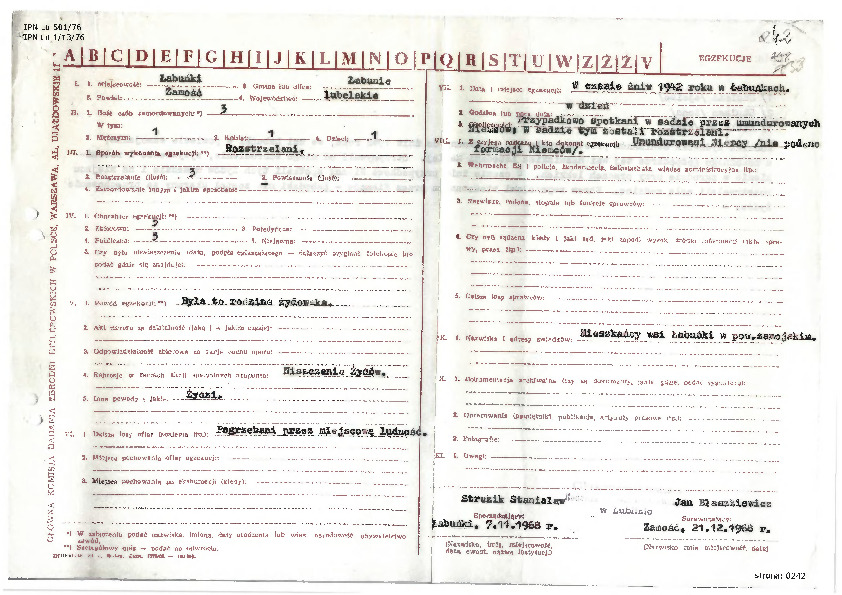 IPN Lu 501/76
IPN Lu 1/13/76
242
A B C D E F G H I J K L M N O P Q R S T U W Z Ż Ź V
EGZEKUCJE
GŁÓWNA KOMISJA BADANIA ZBRODNI HITLEROWSKICH W POLSCE, WARSZAWA, AL. UJAZDOWSKIE 11
I. 1. Miejscowość: Łabuńki 2. Gmina lub ulica: Łabunie
3. Powiat: Zamość 4. Województwo: lubelskie
II. 1. Ilość osób zamordowanych:*) 3
W tym:
2. Mężczyzn: 1 3. Kobiet: 1 4. Dzieci: 1
III. 1. Sposób wykonania egzekucji:**) Rozstrzelani.
2. Rozstrzelanie (ilość): 3 3. Powieszenie (ilość): —
4. Zamordowanie innym i jakim sposobem
IV. 1. Charakter egzekucji:**)
2. Zbiorowa: 3 3. Pojedyncza:
4. Publiczna: 3 5. Niejawna:
V. 1. Powód egzekucji:**) Była to rodzina żydowska.
2. Akt zwrotu za działalność (jaką i w jakim czasie):
3. Odpowiedzialność zbiorowa za akcje ruchu oporu:
4. Represje w ramach akcji specjalnych okupanta: Niszczenie Żydów.
5. Inne powody i jakie: Żydzi.
VI. 1. Dalsze losy ofiar (spalenie itp.): Pogrzebani przez miejscową ludność.
2. Miejsce pochowania ofiar egzekucji:
3. Miejsce pochowania po ekshumacji (kiedy):
*) W załączeniu podać nazwiska, imiona, daty urodzenia lub wiek, narodowość, obywatelstwo
zawód.
**) Szczegółowy opis — podać na odwrocie.
VII. 1. Data i miejsce egzekucji: W czasie żniw 1942 roku w Łabuńkach.
2. Godzina lub pora dnia: w dzień
3. Okoliczności: Przypadkowo spotkani w sadzie przez umundurowanych
Niemców, w sadzie tym zostali rozstrzelani.
VIII. 1. Z czyjego rozkazu i kto dokonał egzekucji: Umundurowani Niemcy /nie podano
formacji Niemców/.
2. Wehrmacht, SS i policja, żandarmeria, hitlerowskie władze administracyjne itp.:
3. Nazwiska, imiona, stopnie lub funkcje sprawców:
4. Czy byli sądzeni kiedy i jaki sąd, jaki zapadł wyrok,
5. Dalsze losy sprawców:
IX. 1. Nazwiska i adresy świadków: Mieszkańcy wsi Łabuńki w pow.zamojskim.
X. 1. Dokumentacja archiwalna (czy są dokumenty, jakie, gdzie, podać sygnaturę):
2. Opracowania (pamiętniki, publikacje, artykuły prasowe itp.):
3. Fotografie:
XI. 1. Uwagi:
Struzik Stanisław
w Lublinie
Jan Błaszkiewicz
Sporządzający:
Sprawdzający:
Łabuńki, 7.11.1968 r.
Zamość, 21.12.1968 r.
(Nazwisko, imię, miejscowość,
data ewent. nazwa instytucji)
(Nazwisko, imię, miejscowość, data)
strona: 0242